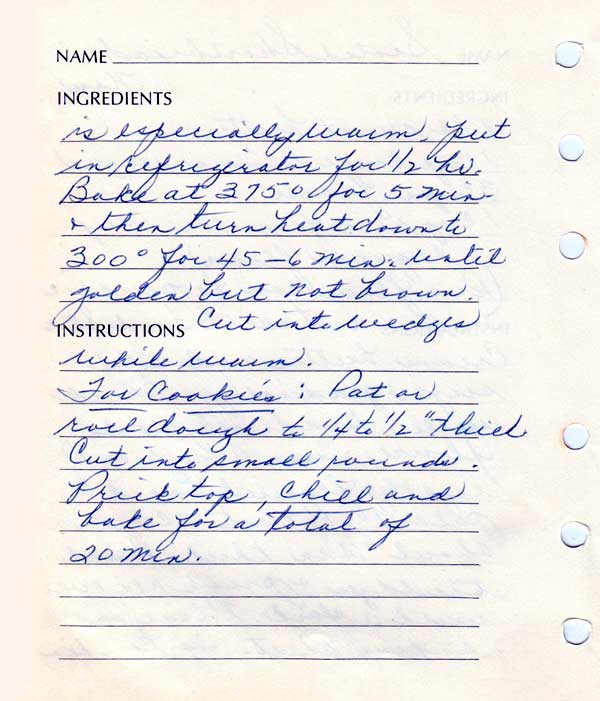 NAME
INGREDIENTS
is especially warm, put
in refrigirator for 1/2 hr.
Bake at 375° for 5 min
+ then turn heat down to
300° for 45 - 6 min. until
golden but not brown.
INSTRUCTIONS Cut into wedges
while warm.
For Cookies : Pat or
roll dough to 1/4 to 1/2" thick
Cut into small rounds.
Prick top, chill and
bake for a total of
20 min.